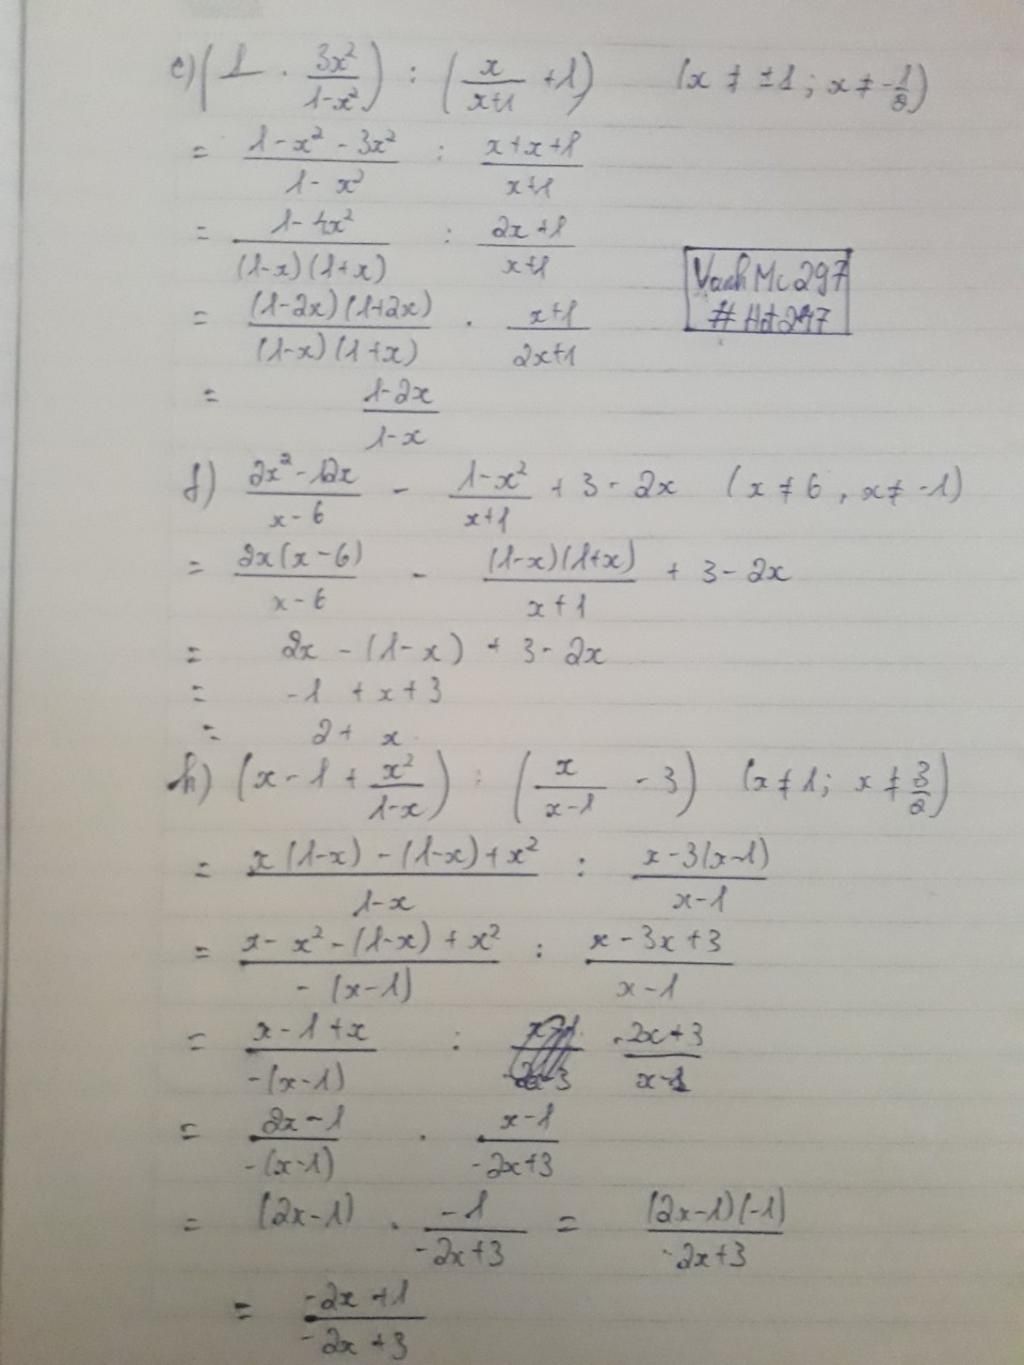 e) (1 - 3x²/(1-x²)) : (x/(x+1) + 1) (x ≠ ±1; x ≠ -1/2)
= (1-x²-3x²)/(1-x²) : (x+x+1)/(x+1)
= (1-4x²)/((1-x)(1+x)) : (2x+1)/(x+1)
= ((1-2x)(1+2x))/((1-x)(1+x)) . (x+1)/(2x+1)
= (1-2x)/(1-x)
VanhMc297
#Hot297
f) (2x²-12x)/(x-6) - (1-x²)/(x+1) + 3 - 2x (x ≠ 6, x ≠ -1)
= (2x(x-6))/(x-6) - ((1-x)(1+x))/(x+1) + 3 - 2x
= 2x - (1-x) + 3 - 2x
= -1 + x + 3
= 2 + x
h) (x - 1 + x²/(1-x)) : (x/(x-1) - 3) (x ≠ 1; x ≠ 3/2)
= (x(1-x) - (1-x) + x²)/(1-x) : (x-3(x-1))/(x-1)
= (x - x² - (1-x) + x²)/(-(x-1)) : (x-3x+3)/(x-1)
= (x-1+x)/(-(x-1)) : (-2x+3)/(x-1)
= (2x-1)/(-(x-1)) . (x-1)/(-2x+3)
= (2x-1) . (-1)/(-2x+3) = ((2x-1)(-1))/(-2x+3)
= (-2x+1)/(-2x+3)